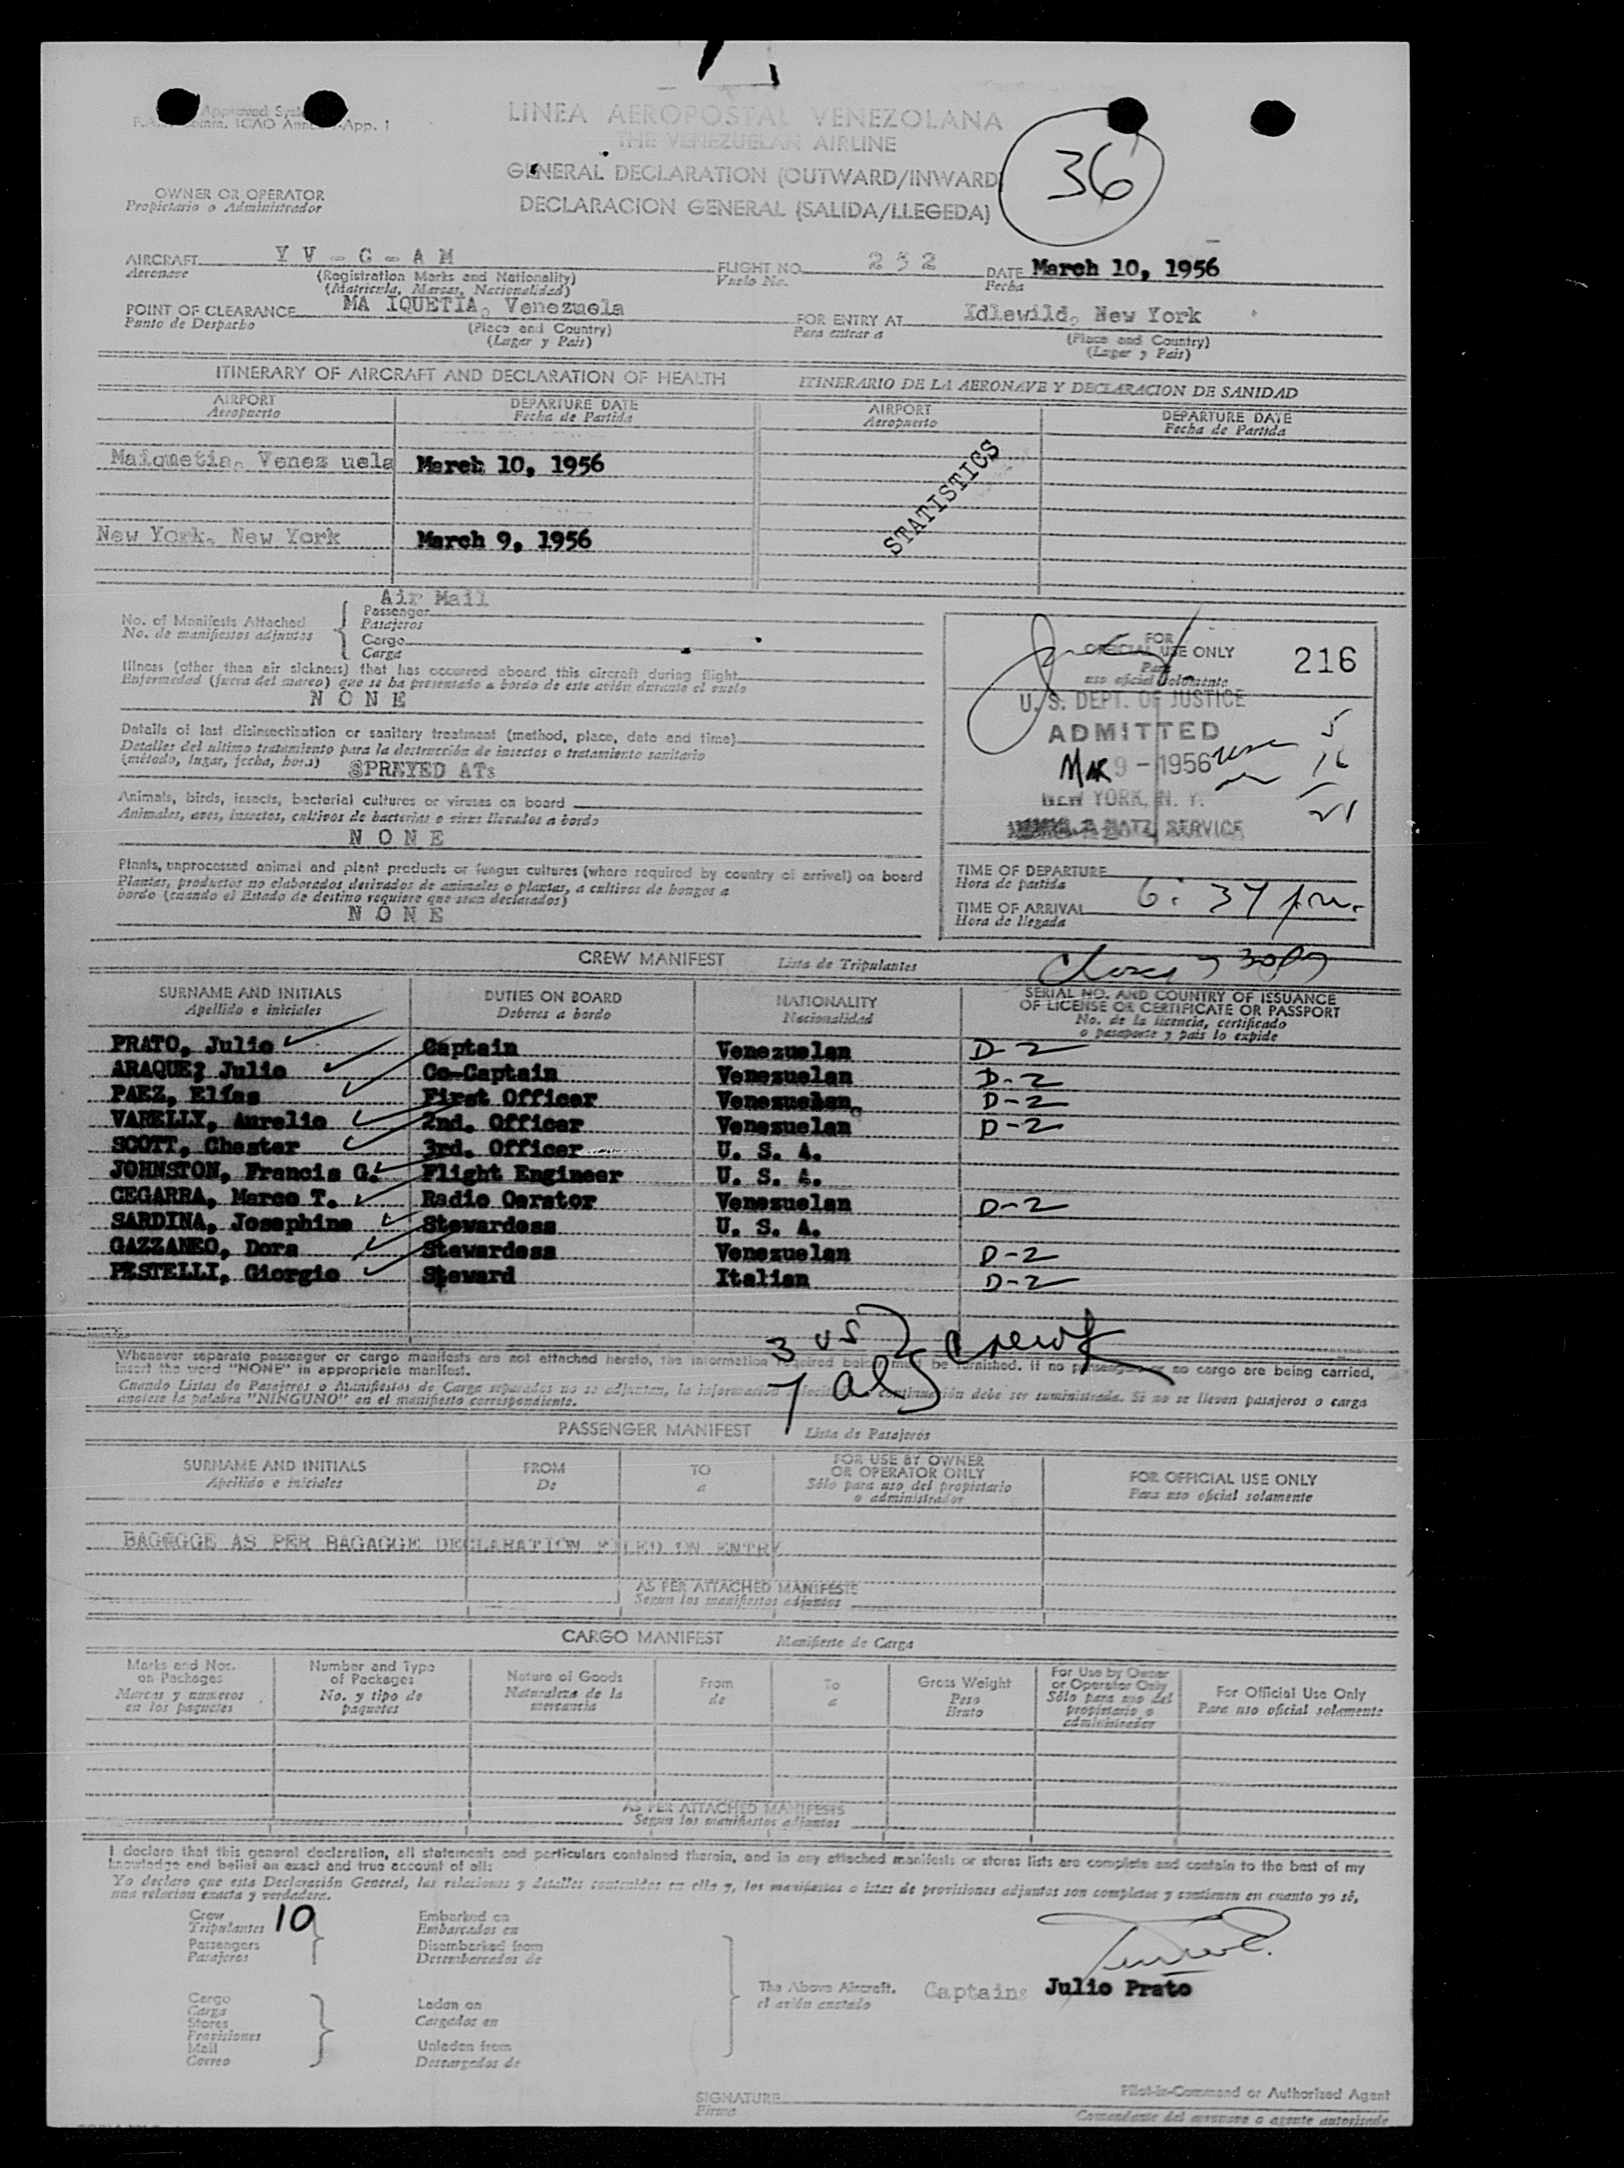 Approved
Comm. ICAO App. 1
LINEA AEROPOSTAL VENEZOLANA
THE VENEZUELAN AIRLINE
GENERAL DECLARATION (OUTWARD/INWARD)
DECLARACION GENERAL (SALIDA/LLEGEDA)
36
OWNER OR OPERATOR
Propietario o Administrador
AIRCRAFT Y V - C - A M FLIGHT NO. 2 5 2 DATE March 10, 1956
Aeronave (Registration Marks and Nationality) Vuelo No. Fecha
(Matricula, Marcas, Nacionalidad)
POINT OF CLEARANCE MA IQUETIA, Venezuela FOR ENTRY AT Idlewild, New York
Punto de Despacho (Place and Country) Para entrar a (Place and Country)
(Lugar y Pais) (Lugar y Pais)
ITINERARY OF AIRCRAFT AND DECLARATION OF HEALTH ITINERARIO DE LA AERONAVE Y DECLARACION DE SANIDAD
AIRPORT DEPARTURE DATE AIRPORT DEPARTURE DATE
Aeropuerto Fecha de Partida Aeropuerto Fecha de Partida
Maiquetia, Venez uela March 10, 1956
STATISTICS
New York, New York March 9, 1956
Air Mail
No. of Manifests Attached Passenger
No. de manifiestos adjuntos Pasajeros
Cargo
Carga
Illness (other than air sickness) that has occurred aboard this aircraft during flight
Enfermedad (fuera del mareo) que se ha presentado a bordo de este avión durante el vuelo
N O N E
Details of last disinsectization or sanitary treatment (method, place, date and time)
Detalles del ultimo tratamiento para la destrucción de insectos o tratamiento sanitario
(método, lugar, fecha, hora) SPREYED AT:
Animals, birds, insects, bacterial cultures or viruses on board
Animales, aves, insectos, cultivos de bacterias o virus llevados a bordo
N O N E
Plants, unprocessed animal and plant products or fungus cultures (where required by country of arrival) on board
Plantas, productos no elaborados derivados de animales o plantas, a cultivos de hongos a
bordo (cuando el Estado de destino requiere que sean declarados)
N O N E
FOR
OFFICIAL USE ONLY 216
Para
uso oficial solamente
U. S. DEPT. OF JUSTICE
ADMITTED 5
MAR 9 - 1956 16
NEW YORK, N. Y. 21
NATZ. SERVICE
TIME OF DEPARTURE
Hora de partida
TIME OF ARRIVAL 6:37 p.m.
Hora de llegada
CREW MANIFEST Lista de Tripulantes
SURNAME AND INITIALS DUTIES ON BOARD NATIONALITY SERIAL NO. AND COUNTRY OF ISSUANCE
Apellido e iniciales Deberes a bordo Nacionalidad OF LICENSE OR CERTIFICATE OR PASSPORT
No. de la licencia, certificado
o pasaporte y pais lo expide
PRATO, Julio Captain Venezuelan D-2
ARAQUE; Julio Co-Captain Venezuelan D-2
PAEZ, Elías First Officer Venezuelan D-2
VARELLY, Aurelio 2nd. Officer Venezuelan D-2
SCOTT, Chester 3rd. Officer U. S. A.
JOHNSTON, Francis G. Flight Engineer U. S. A.
CEGARRA, Marco T. Radio Oerator Venezuelan D-2
SARDINA, Josephine Stewardess U. S. A.
GAZZANEO, Dora Stewardess Venezuelan D-2
PESTELLI, Giorgio Steward Italian D-2
3 US Crew
7 als
Whenever separate passenger or cargo manifests are not attached hereto, the information required below must be furnished. If no passengers or no cargo are being carried,
insert the word "NONE" in appropriate manifest.
Cuando Listas de Pasajeros o Manifiestos de Carga separados no se adjuntan, la informacion continuación debe ser suministrada. Si no se lleven pasajeros o carga
anotese la palabra "NINGUNO" en el manifiesto correspondiente.
PASSENGER MANIFEST Lista de Pasajeros
SURNAME AND INITIALS FROM TO FOR USE BY OWNER FOR OFFICIAL USE ONLY
Apellido e iniciales De a OR OPERATOR ONLY Para uso oficial solamente
Sólo para uso del propietario
o administrador
BAGAGGE AS PER BAGAGGE DECLARATION FILED ON ENTRY
AS PER ATTACHED MANIFESTS
Segun los manifiestos adjuntos
CARGO MANIFEST Manifiesto de Carga
Marks and Nos. Number and Type Nature of Goods From To Gross Weight For Use by Owner For Official Use Only
on Packages of Packages Naturaleza de la de a Peso or Operator Only Para uso oficial solamente
Marcas y numeros No. y tipo de mercancia Bruto Sólo para uso del
en los paquetes paquetes propietario o
administrador
AS PER ATTACHED MANIFESTS
Segun los manifiestos adjuntos
I declare that this general declaration, all statements and particulars contained therein, and in any attached manifests or stores lists are complete and contain to the best of my
knowledge and belief an exact and true account of all:
Yo declaro que esta Declaración General, las relaciones y detalles contenidos en ella y, los manifiestos o listas de provisiones adjuntos son completos y contienen en cuanto yo sé,
una relacion exacta y verdadera.
Crew 10 Embarked on
Tripulantes Embarcados en
Passengers Disembarked from
Pasajeros Desembarcados de
The Above Aircraft. Captain: Julio Prato
el avión anotado
Cargo Laden on
Carga Cargados en
Stores
Provisiones
Mail Unladen from
Correo Descargados de
SIGNATURE Pilot-in-Command or Authorized Agent
Firma Comandante del aeronave o agente autorizado